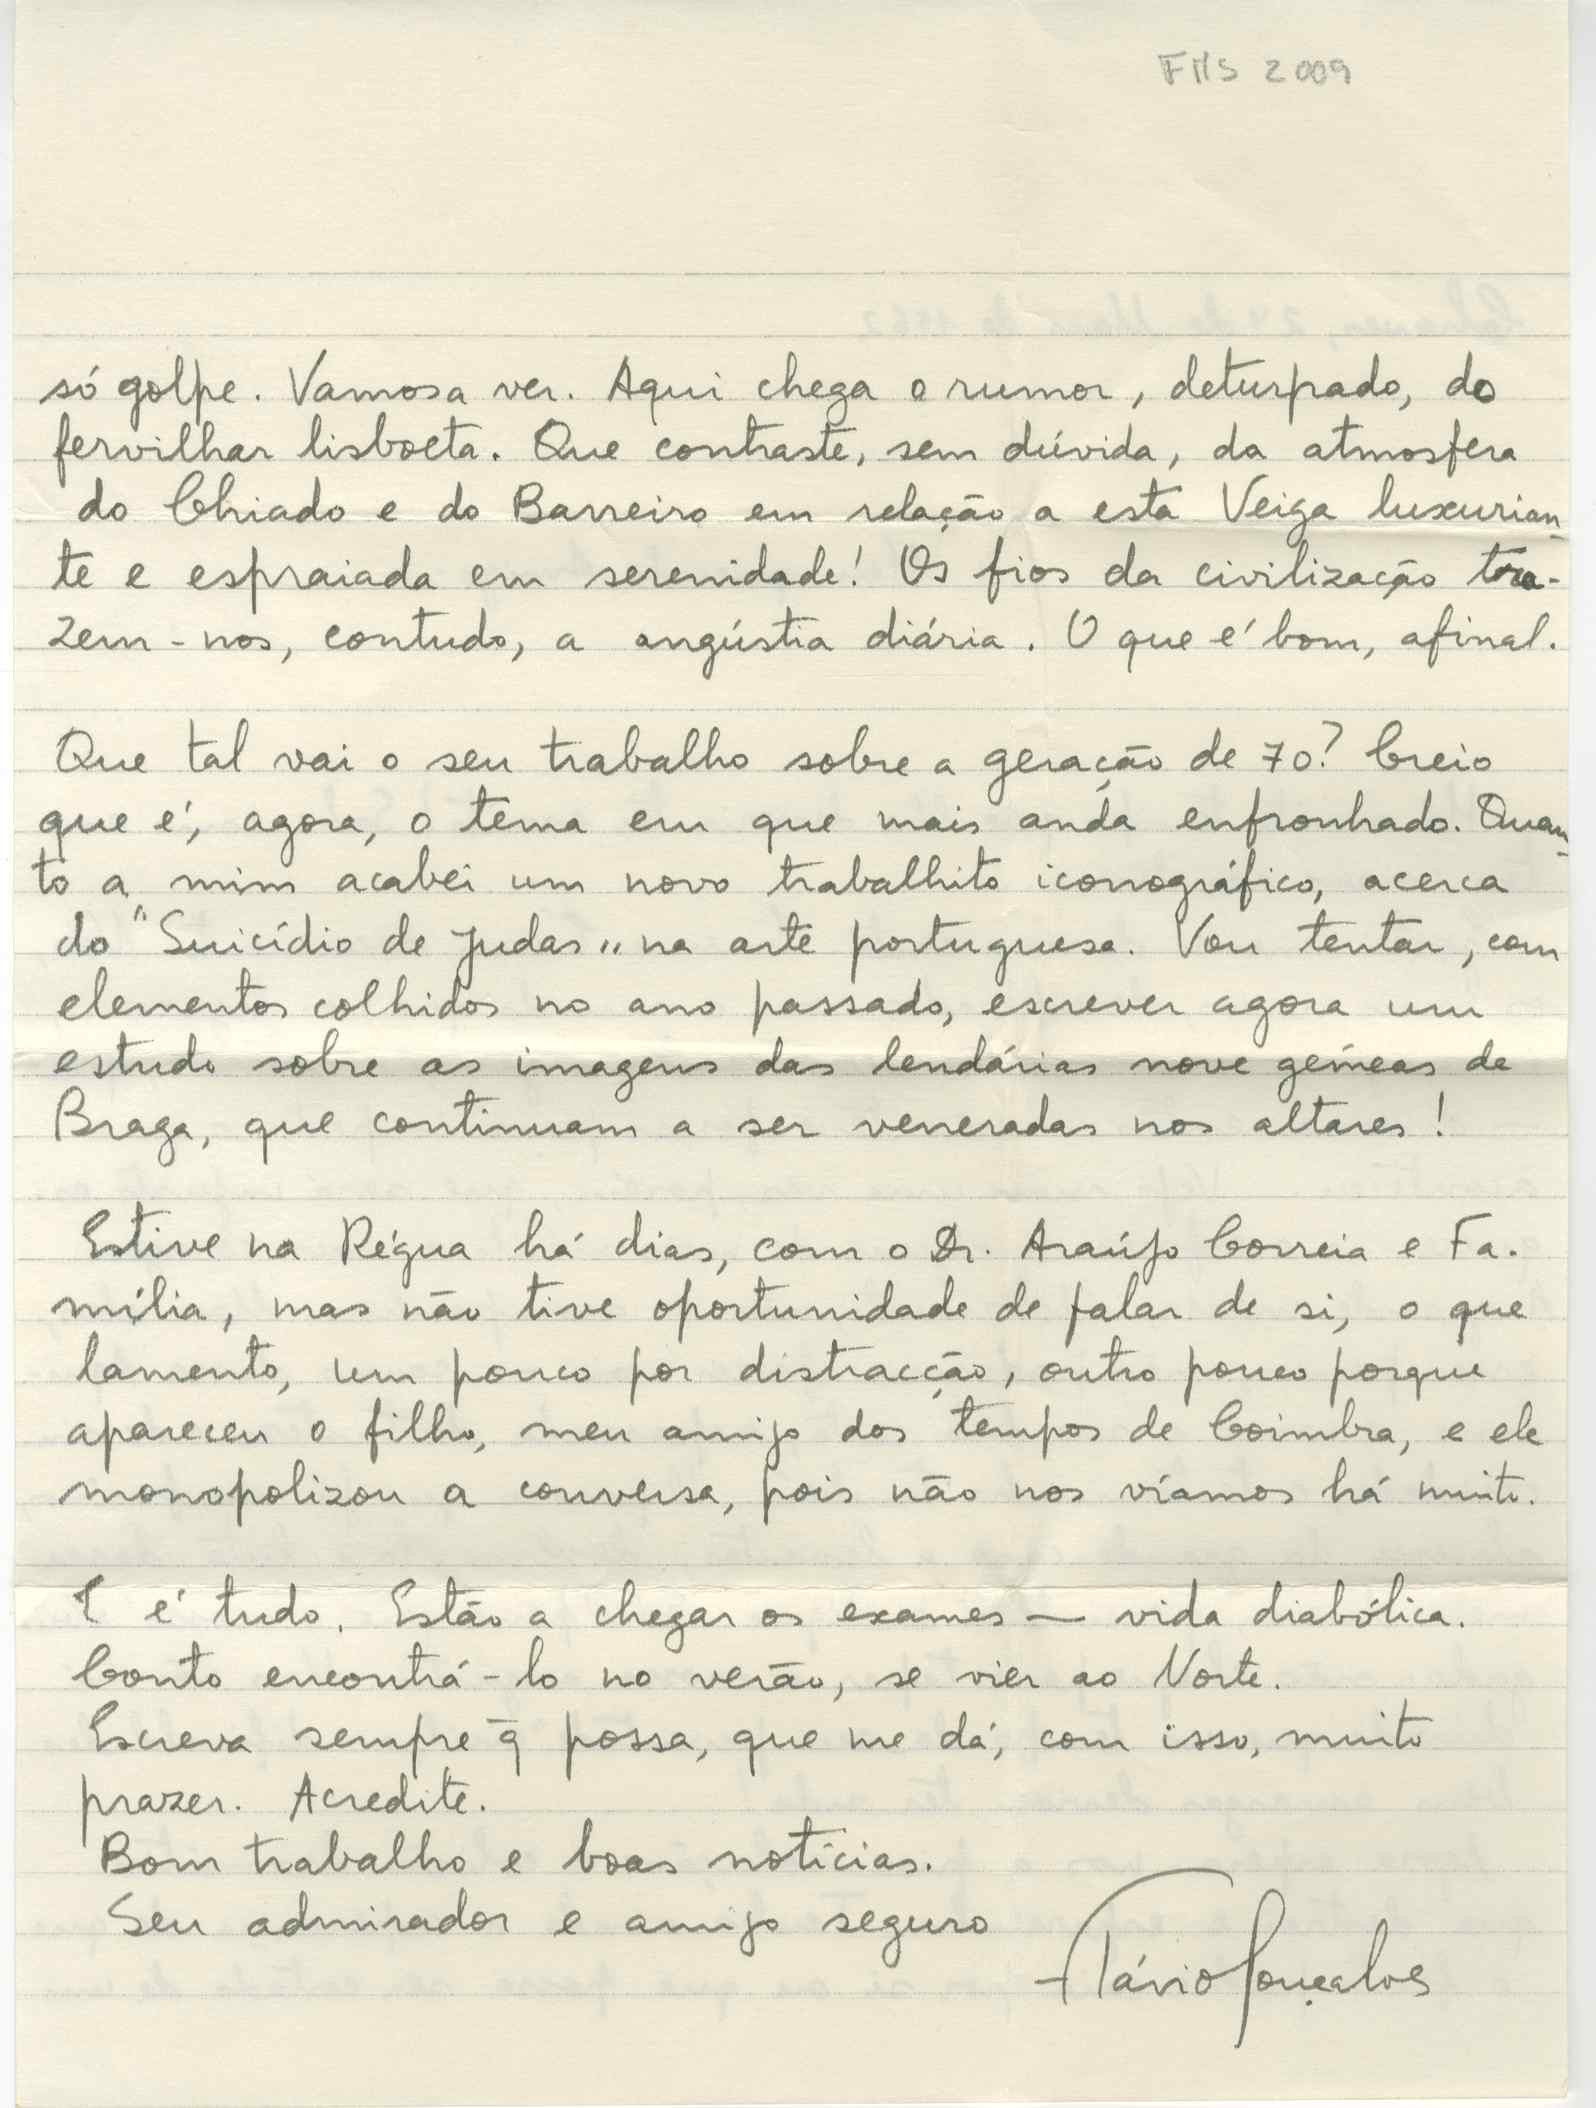 FMS 2009
só golpe. Vamos a ver. Aqui chega o rumor, deturpado, do
fervilhar lisboeta. Que contraste, sem dúvida, da atmosfera
do Chiado e do Barreiro em relação a esta Veiga luxurian-
te e espraiada em serenidade! Os fios da civilização tra-
zem-nos, contudo, a angústia diária. O que é bom, afinal.
Que tal vai o seu trabalho sobre a geração de 70? Creio
que é, agora, o tema em que mais anda enfronhado. Quan-
to a mim acabei um novo trabalhito iconográfico, acerca
do "Suicídio de Judas" na arte portuguesa. Vou tentar, com
elementos colhidos no ano passado, escrever agora um
estudo sobre as imagens das lendárias nove gémeas de
Braga, que continuam a ser veneradas nos altares!
Estive na Régua há dias, com o Dr. Araújo Correia e Fa-
mília, mas não tive oportunidade de falar de si, o que
lamento, um pouco por distracção, outro pouco porque
apareceu o filho, meu amigo dos tempos de Coimbra, e ele
monopolizou a conversa, pois não nos víamos há muito.
E é tudo. Estão a chegar os exames — vida diabólica.
Conto encontrá-lo no verão, se vier ao Norte.
Escreva sempre q̄ possa, que me dá, com isso, muito
prazer. Acredite.
Bom trabalho e boas notícias.
Seu admirador e amigo seguro
Flávio Gonçalves